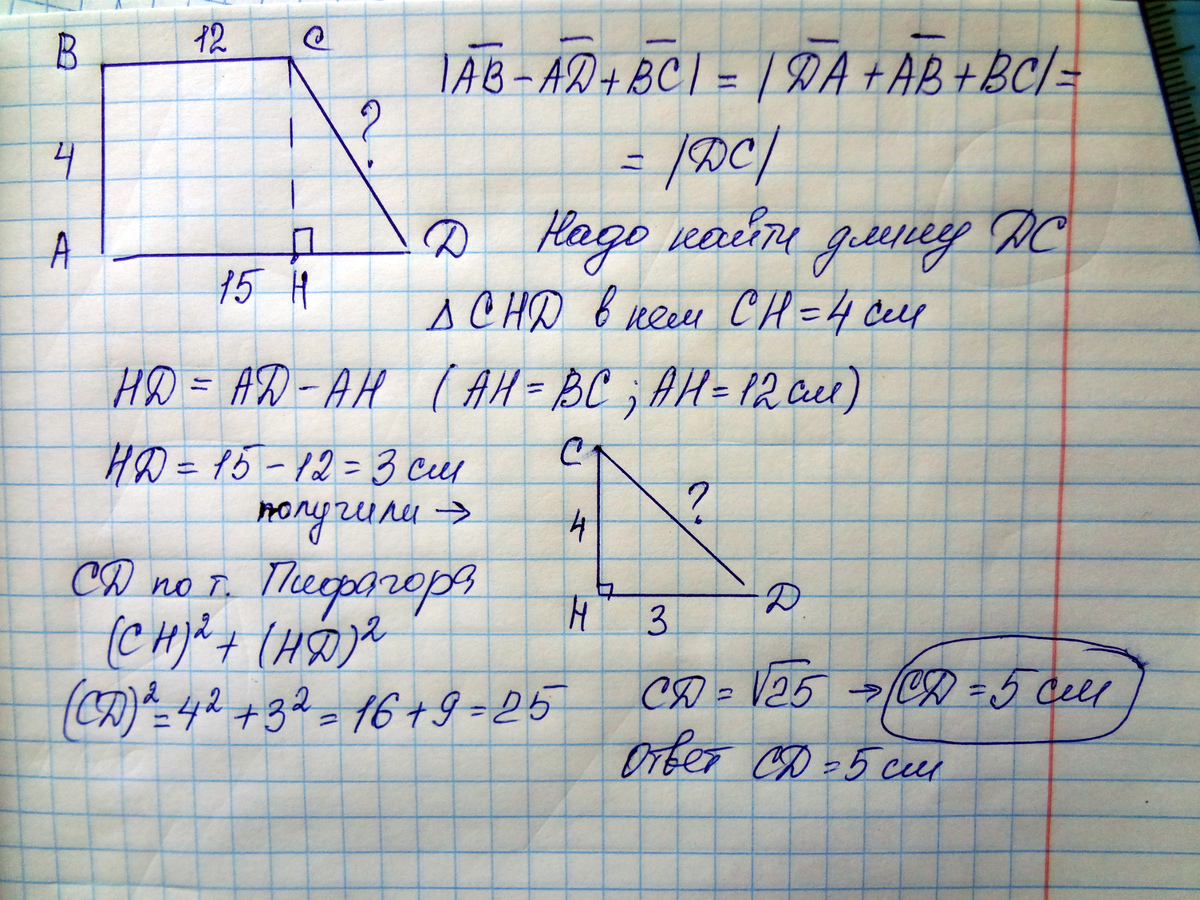 B 12 C
4
?
A
15 H
D
|A̅B̅ - A̅D̅ + B̅C̅| = |D̅A̅ + A̅B̅ + BC| =
= |DC|
Надо найти длину DC
Δ CHD в нем CH = 4 см
HD = AD - AH (AH = BC ; AH = 12 см)
HD = 15 - 12 = 3 см
получили →
C
4
?
H
3
D
CD по т. Пифагора
(CH)² + (HD)²
(CD)² = 4² + 3² = 16 + 9 = 25
CD = √25 → CD = 5 см
Ответ CD = 5 см